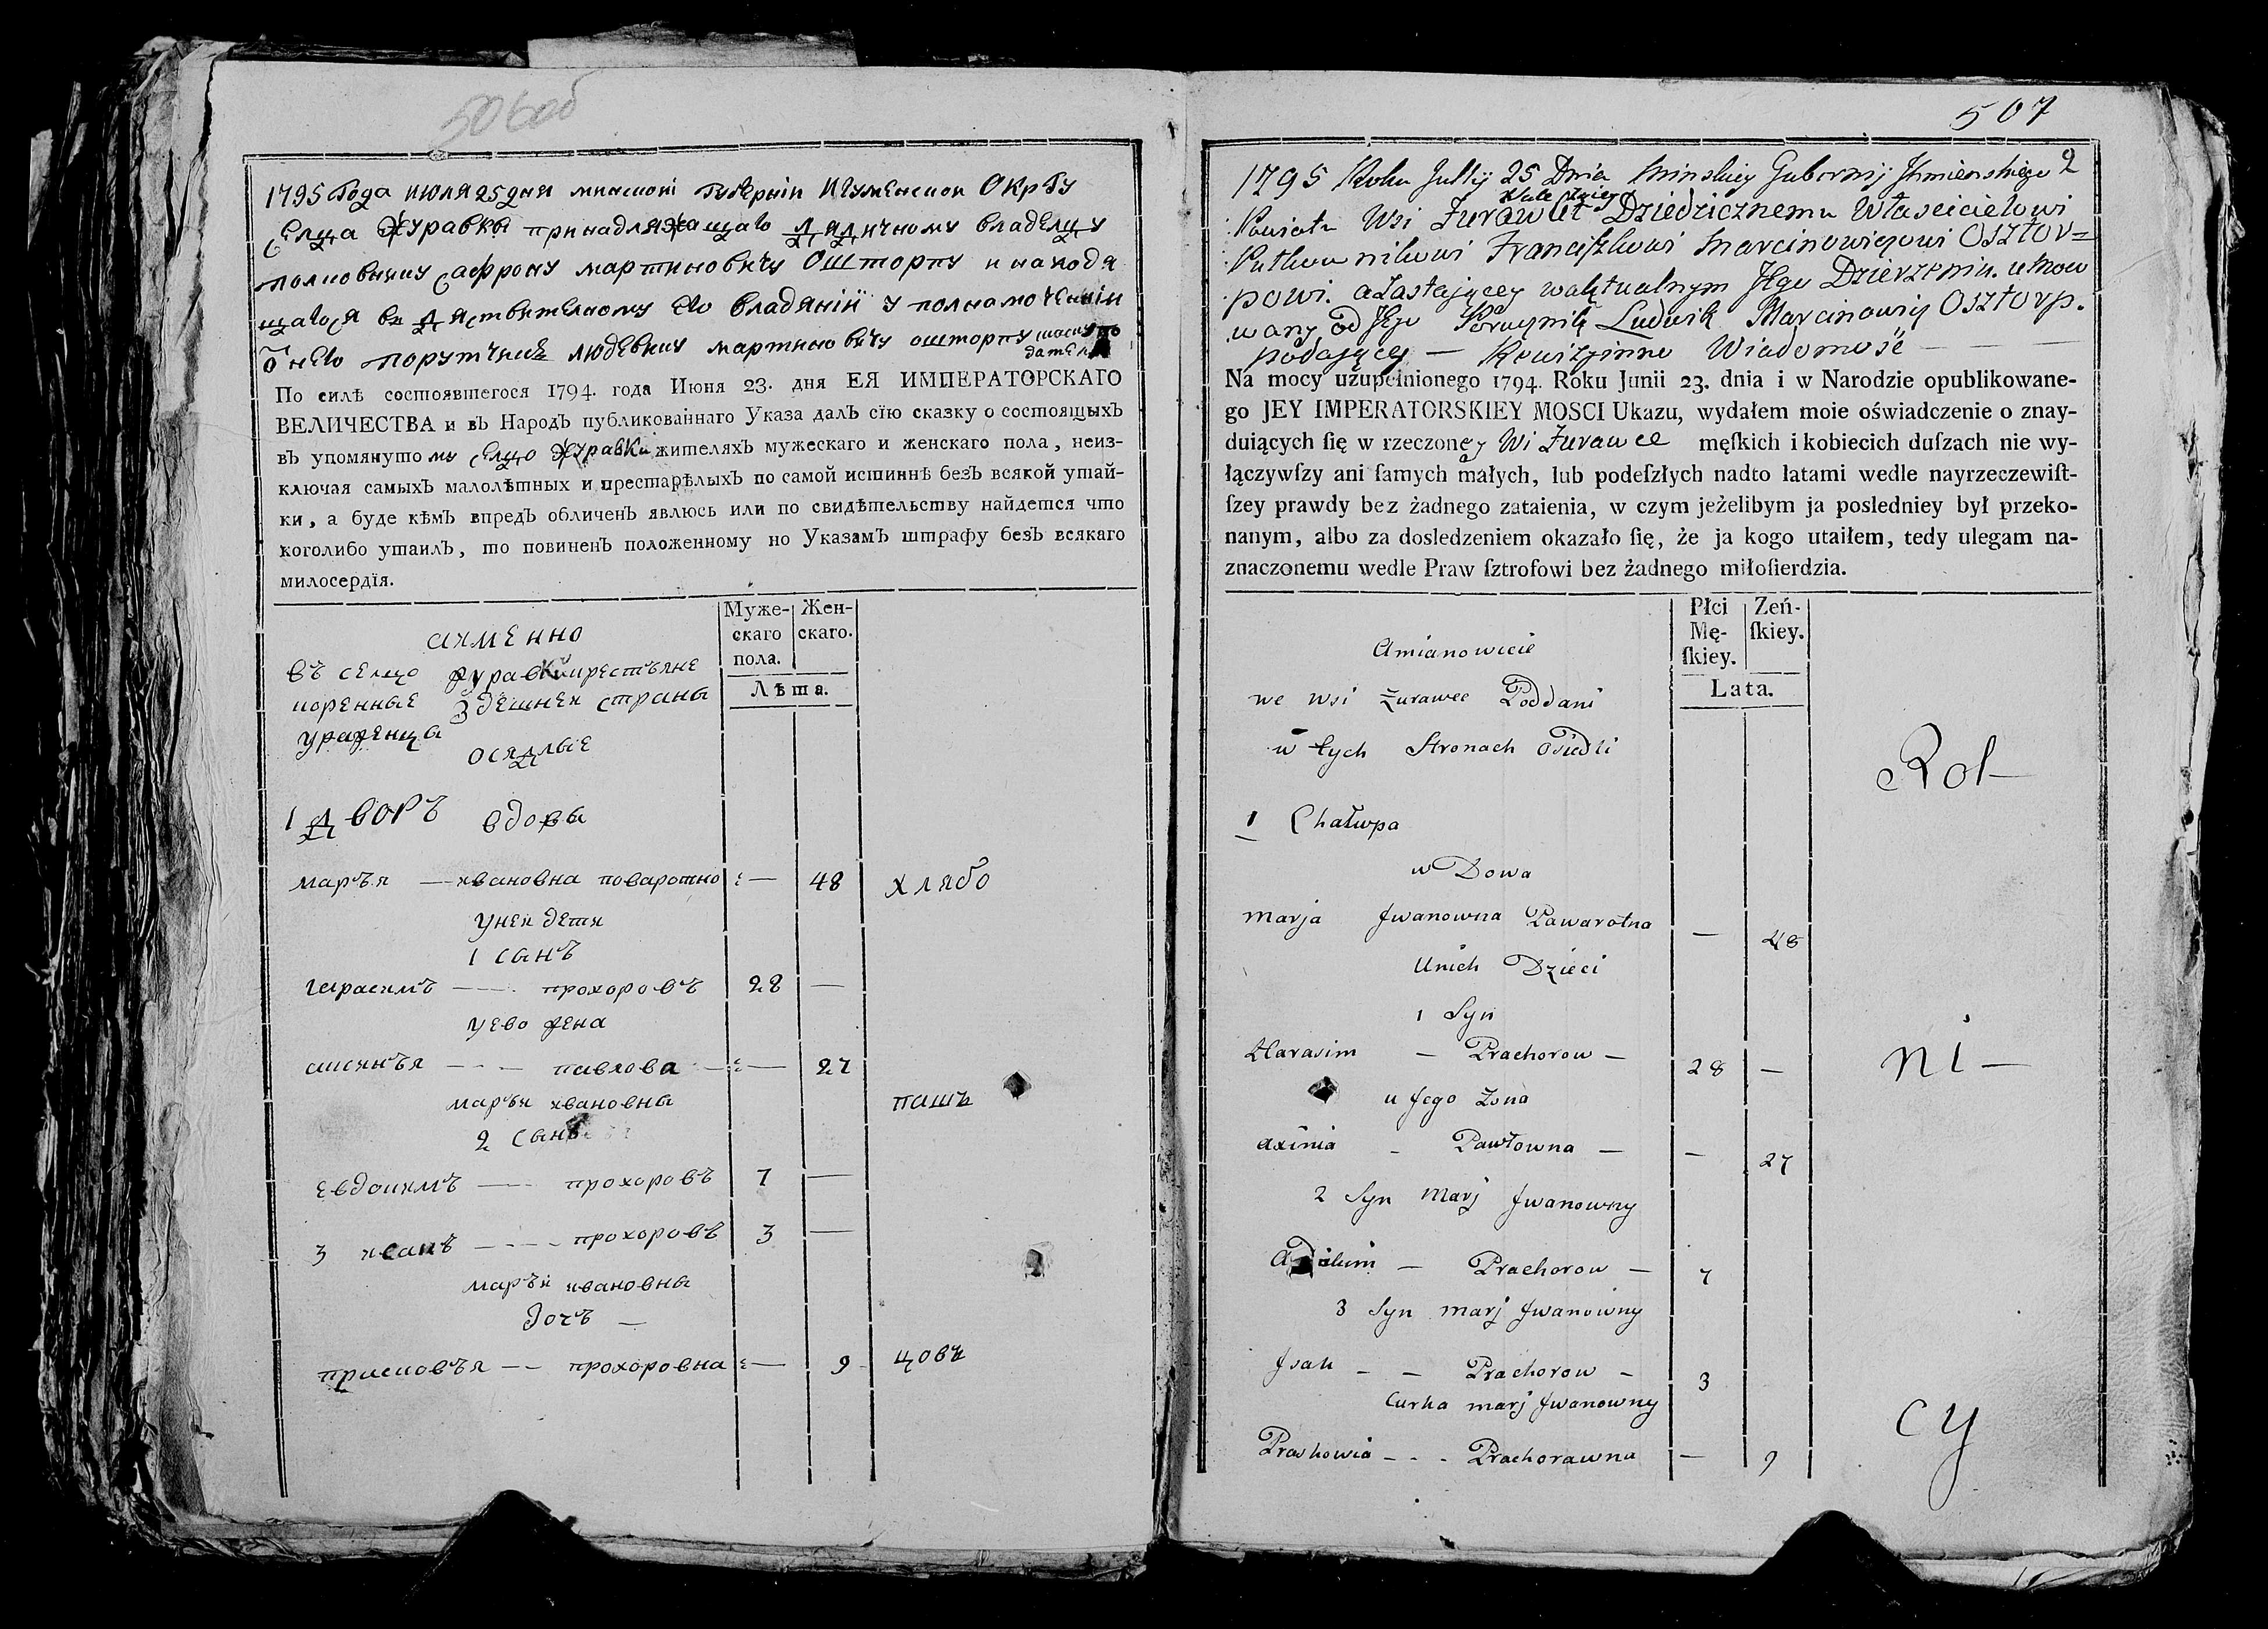 506об
1795 Года июля 25 дня минской Губернiи Игуменской Округу
селца Журавки принадлежащаго дедичному владелцу
полковнику мартиновичу Ошторпу и находя
щагося в действителному его владенiи у полнамоченнiи
от него порутчика людевику мартиновичу ошторпу
По силѣ состоявшегося 1794. года Июня 23. дня ЕЯ ИМПЕРАТОРСКАГО
ВЕЛИЧЕСТВА и вЪ НародЪ публикованнаго Указа далЪ сїю сказку о состоящыхЪ
вЪ упомянутому селцо Журавки жителяхЪ мужескаго и женскаго пола, неиз-
ключая самыхЪ малолѣтных и престарѣлыхЪ по самой истиннѣ безЪ всякой утай-
ки, а буде кѣмЪ впредЪ обличенЪ явлюсь или по свидѣтельству найдется что
коголибо утаилЪ, то повиненЪ положенному но УказамЪ штрафу безЪ всякаго
милосердїя.
Муже- скаго пола. Жен- скаго.
Лѣта.
аименно
въ селцо журавки крестьяне
коренные здешнеи страны
ураженцы
оседлые
1 дворъ вдовы
маръя — ивановна поваротно — 48 хлебо
унеи дети
1 сынъ
герасимъ — прохоровъ 28 —
уево жена
аксинъя — — павлова — 27
маръи ивановны пашъ
2 сынъ
евдокимъ — прохоровъ 7 —
3 исакъ — — прохоровъ 3 —
маръи ивановны
дочъ —
присковъя — — прохоровна — 9 цовъ
507
2
1795 Roku Julij 25 Dnia Minskiey Gubernij Ihmienskiego
Powiatu Wsi Zurawce Dziedzicznemu Włascicielowi
Pułkownikowi Franciszkowi Marcinowiczowi Osztor=
powi. a Zastającey w aktualnym Jego Dzierzeniu. umoco
wany od Jego Porucznik Ludwik Marcinowicz Osztorp.
podającey — Rewizyinne Wiadomość — — —
Na mocy uzupełnionego 1794. Roku Junii 23. dnia i w Narodzie opublikowane-
go JEY IMPERATORSKIEY MOSCI Ukazu, wydałem moie oświadczenie o znay-
duiących ſię w rzeczoney Wsi Zurawce męſkich i kobiecich duſzach nie wy-
łączywſzy ani ſamych małych, lub podeſzłych nadto latami wedle nayrzeczewiſt-
ſzey prawdy bez żadnego zataienia, w czym jeżelibym ja posledniey był przeko-
nanym, albo za dosledzeniem okazało ſię, że ja kogo utaiłem, tedy ulegam na-
znaczonemu wedle Praw ſztrofowi bez żadnego miłoſierdzia.
Płci Mę- ſkiey. Zeń- ſkiey.
Lata.
Amianowicie
we wsi Zurawce Poddani
w tych Stronach Osiedli
Rol—
1 Chałupa
wDowa
Marja Jwanowna Pawarotna — 48
Unich Dzieci
1 Syn
Harasim — Prachorow — 28 —
ni —
u Jego Zona
axinia - Pawłowna — — 27
2 Syn Marj Jwanowny
Prachorow — 7
3 Syn marj Jwanowny
Jsak — — Prachorow — 3
Curka marj Jwanowny
cy
Praskowia - - - Prachorawna — 9